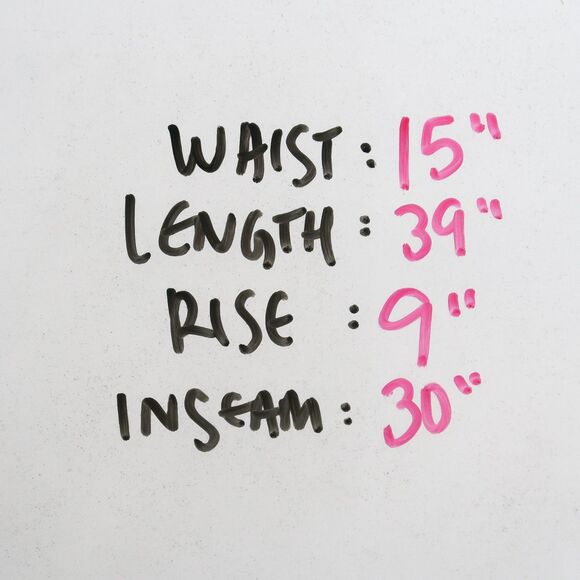 WAIST: 15"
LENGTH: 39"
RISE: 9"
INSEAM: 30"